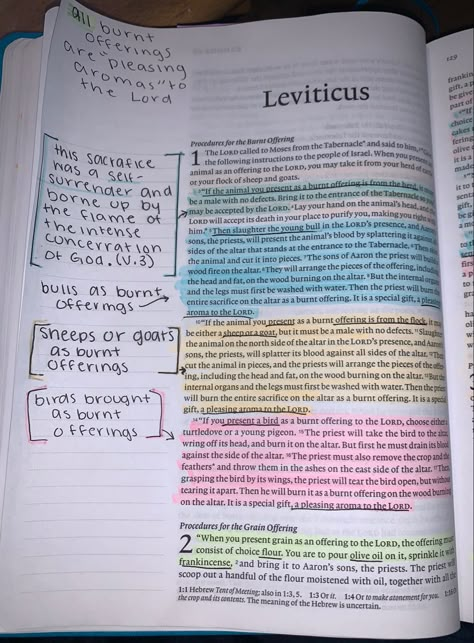 all burnt
offerings
are "pleasing
aromas" to
the Lord
this sacrafice
was a self-
surrender and
borne up by
the flame of
the intense
concecration
of God. (v.3)
bulls as burnt
offerings
sheeps or goats
as burnt
offerings
birds brought
as burnt
offerings
Leviticus
Procedures for the Burnt Offering
1 The LORD called to Moses from the Tabernacle* and said to him,
the following instructions to the people of Israel. When you present
animal as an offering to the LORD, you may take it from your herd of
or your flock of sheep and goats.
3"If the animal you present as a burnt offering is from the herd, it
be a male with no defects. Bring it to the entrance of the Tabernacle so
may be accepted by the LORD. 4Lay your hand on the animal's head, and
LORD will accept its death in your place to purify you, making you right
him.* 5Then slaughter the young bull in the LORD's presence, and Aaron's
sons, the priests, will present the animal's blood by splattering it against
sides of the altar that stands at the entrance to the Tabernacle. 6Then
the animal and cut it into pieces. 7The sons of Aaron the priest will build
wood fire on the altar. 8They will arrange the pieces of the offering, including
the head and fat, on the wood burning on the altar. 9But the internal
and the legs must first be washed with water. Then the priest will burn
entire sacrifice on the altar as a burnt offering. It is a special gift, a pleasing
aroma to the LORD.
10"If the animal you present as a burnt offering is from the flock, it may
be either a sheep or a goat, but it must be a male with no defects. 11Slaughter
the animal on the north side of the altar in the LORD's presence, and Aaron's
sons, the priests, will splatter its blood against all sides of the altar. 12Then
cut the animal in pieces, and the priests will arrange the pieces of the
offering, including the head and fat, on the wood burning on the altar. 13But the
internal organs and the legs must first be washed with water. Then the priest
will burn the entire sacrifice on the altar as a burnt offering. It is a special
gift, a pleasing aroma to the LORD.
14"If you present a bird as a burnt offering to the LORD, choose either a
turtledove or a young pigeon. 15The priest will take the bird to the altar,
wring off its head, and burn it on the altar. But first he must drain its blood
against the side of the altar. 16The priest must also remove the crop and the
feathers* and throw them in the ashes on the east side of the altar. 17Then,
grasping the bird by its wings, the priest will tear the bird open, but without
tearing it apart. Then he will burn it as a burnt offering on the wood burning
on the altar. It is a special gift, a pleasing aroma to the LORD.
Procedures for the Grain Offering
2 "When you present grain as an offering to the LORD, the offering must
consist of choice flour. You are to pour olive oil on it, sprinkle it with
frankincense, 2and bring it to Aaron's sons, the priests. The priest will
scoop out a handful of the flour moistened with oil, together with all the
1:1 Hebrew Tent of Meeting; also in 1:3, 5. 1:3 Or it. 1:4 Or to make atonement for you. 1:16 Or
the crop and its contents. The meaning of the Hebrew is uncertain.
129